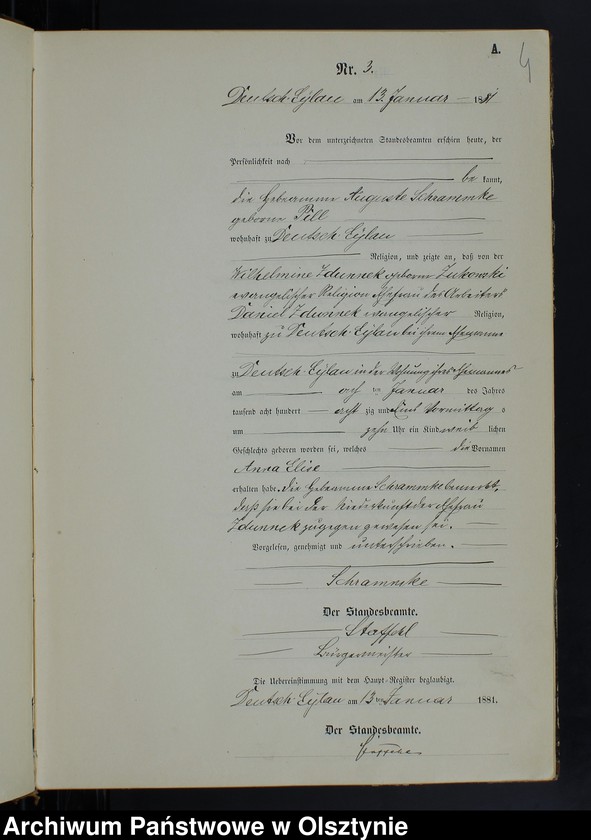 A.
4
Nr. 3.
Deutsch-Eylau am 13. Januar 1881
Vor dem unterzeichneten Standesbeamten erschien heute, der
Persönlichkeit nach
bekannt,
die Hebeamme Auguste Schrammke
geborne Till
wohnhaft zu Deutsch Eylau
Religion, und zeigte an, daß von der
Wilhelmine Zdunnek geborne Zukowski
evangelischer Religion Ehefrau des Arbeiters
Daniel Zdunnek evangelischer Religion,
wohnhaft zu Deutsch-Eylau bei ihrem Ehemanne
zu Deutsch-Eylau in der Wohnung ihres Ehemannes
am acht ten Januar des Jahres
tausend acht hundert acht zig und Eins Vormittag s
um zehn Uhr ein Kind weib lichen
Geschlechts geboren worden sei, welches die Vornamen
Anna Elise
erhalten habe. Die Hebeamme Schrammke bemerkt,
daß sie bei der Niederkunft der Ehefrau
Zdunnek zugegen gewesen sei.
Vorgelesen, genehmigt und unterschrieben.
Schrammke
Der Standesbeamte.
Staffehl
Bürgermeister
Die Uebereinstimmung mit dem Haupt-Register beglaubigt.
Deutsch Eylau am 13 ten Januar 1881.
Der Standesbeamte.
Archiwum Państwowe w Olsztynie